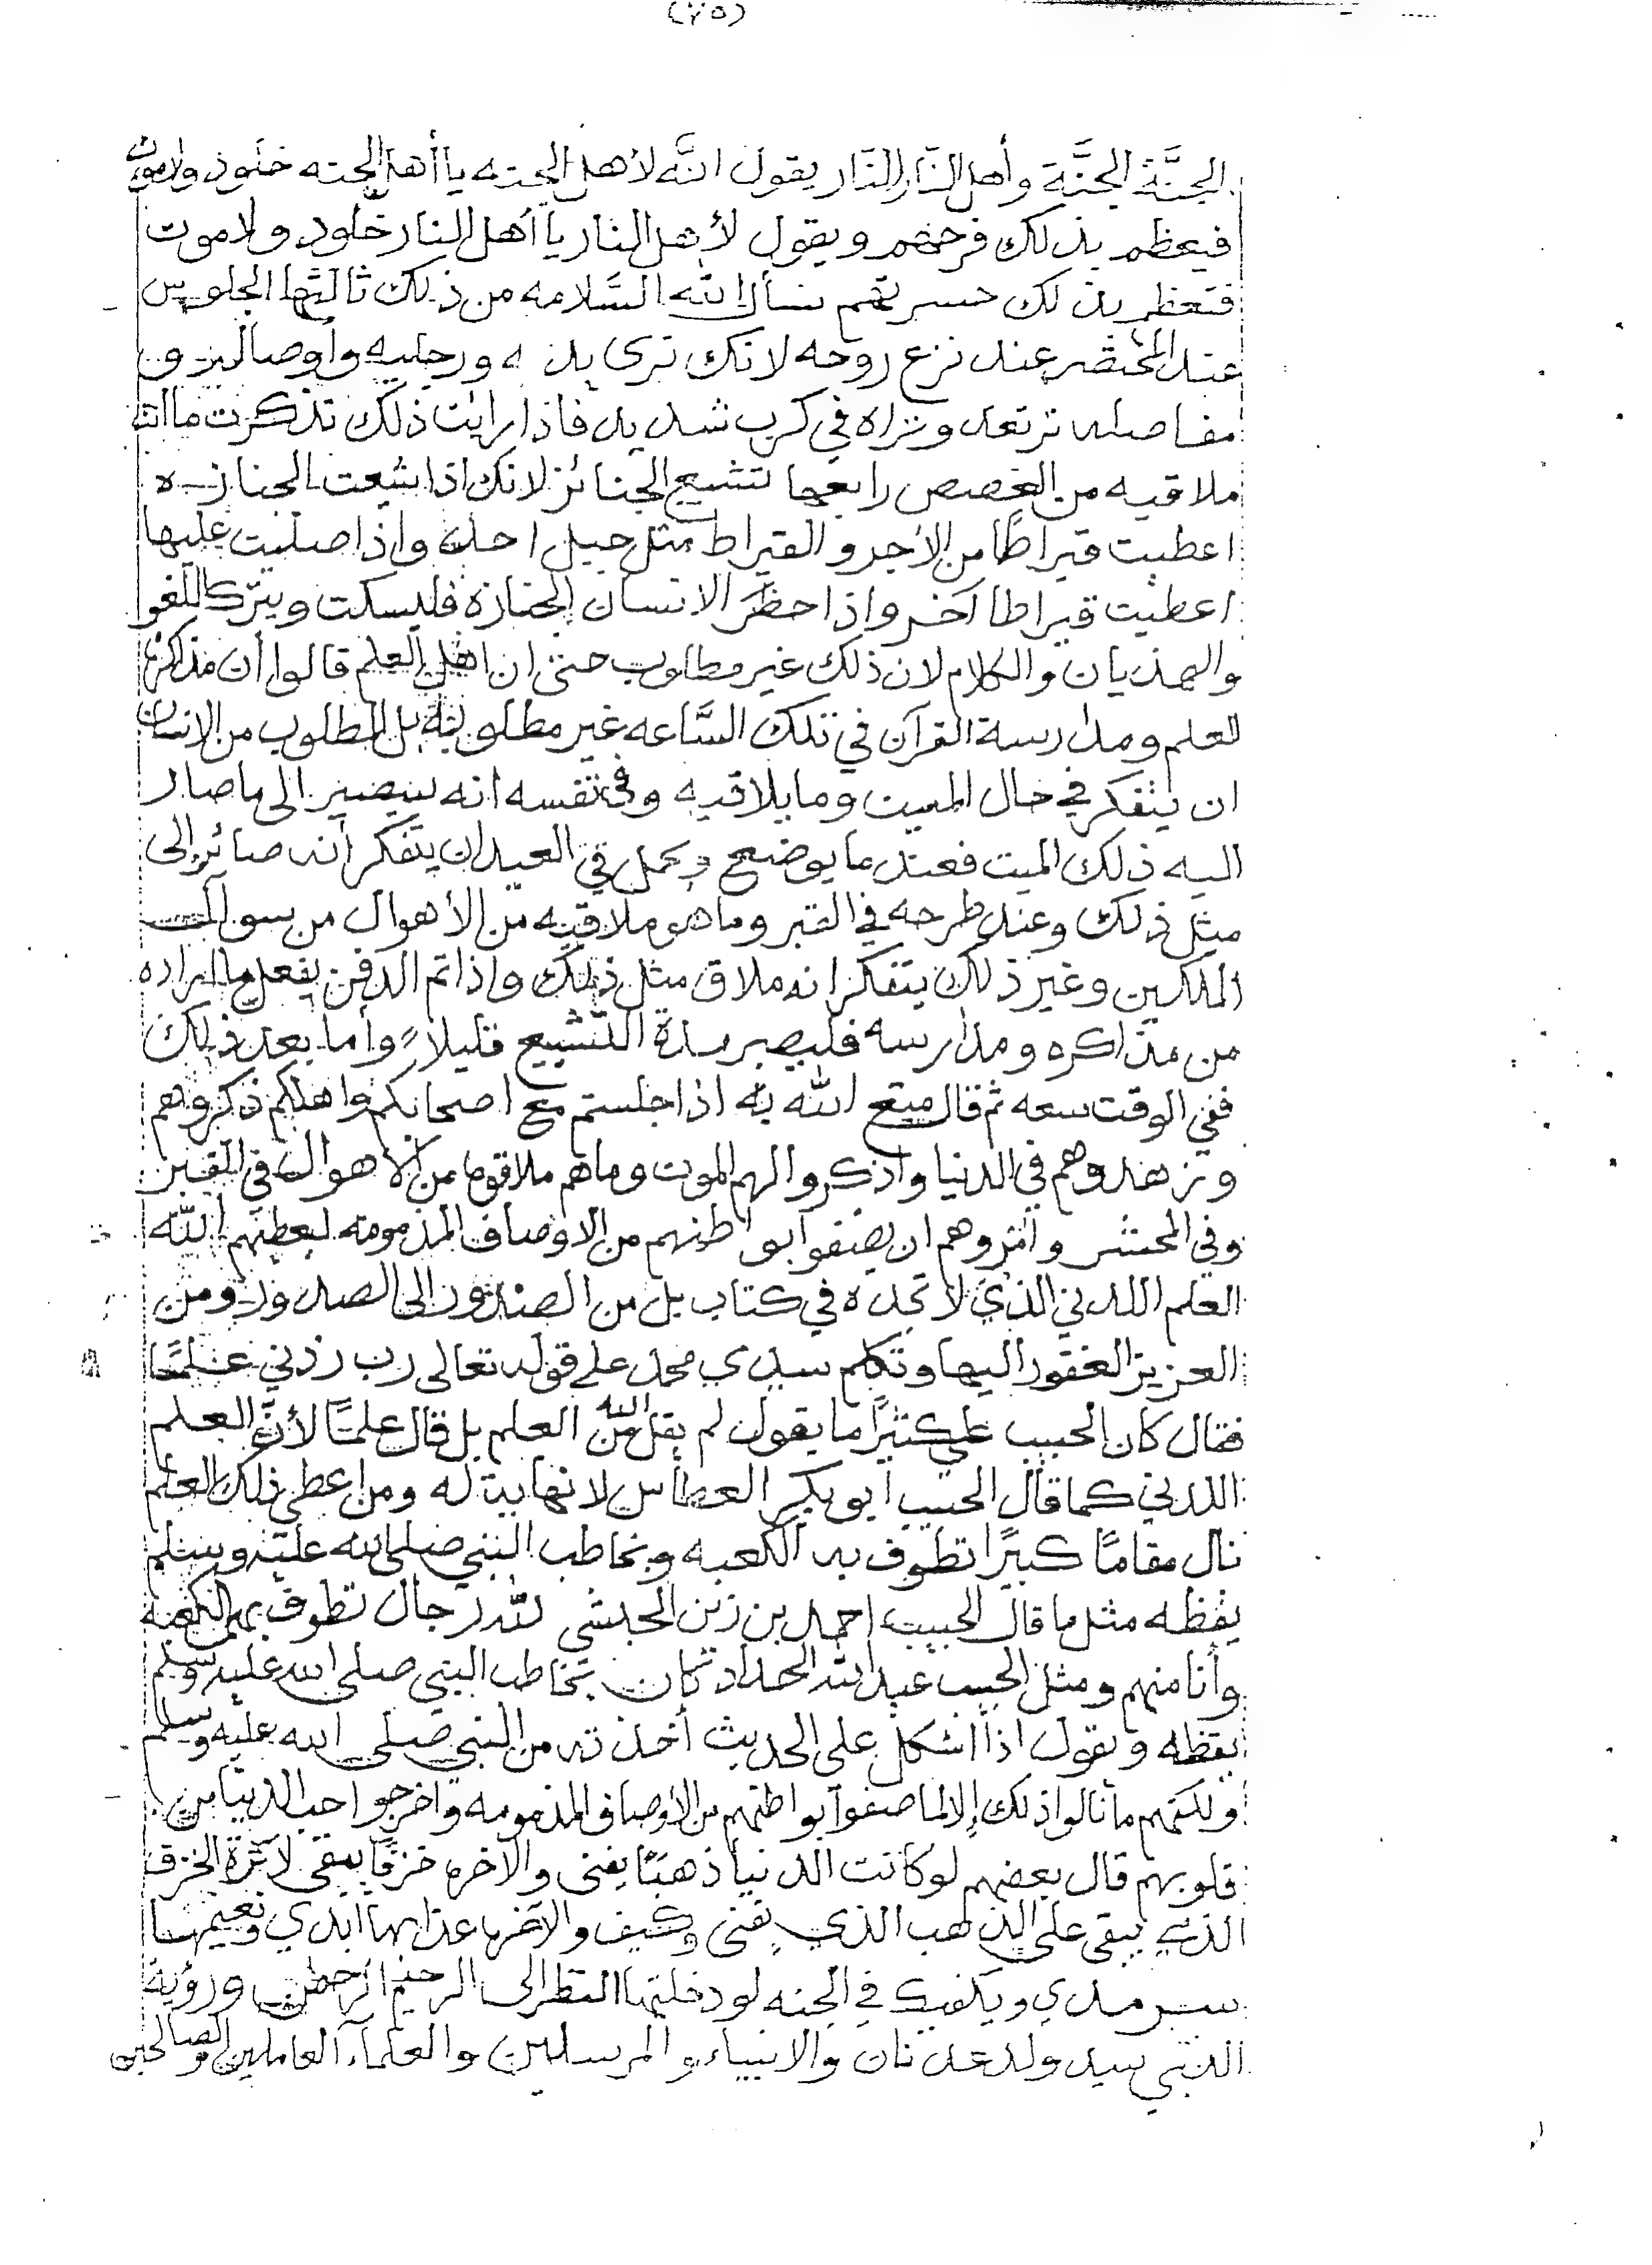 (٢٥)
الجنَّة الجنَّة وأهل النَّار النَّار يقول اللَّه لأهل الجنه يا أهل الجنه خلود ولاموت
فيعظم بذلك فرحهم ويقول لأهل النار يا أهل النار خلود ولا موت
فتعظم بذلك حسرتهم نسأل الله السَّلامه من ذلك ثالثها الجلوس
عند المحتضر عند نزع روحه لانك ترى يديه ورجليه وأوصاله و
مفاصله ترتعد وتراه في كرب شديد فاذا رايت ذلك تذكرت ما انت
ملاقيه من الغصص رابعها تشييع الجنائز لانك اذا شيعت الجنازه
اعطيت قيراطًا من الأجر والقيراط مثل جبل احد واذا صليت عليها
اعطيت قيراطا آخر واذا حظر الانسان الجنازة فليسكت ويترك اللغو
والهذيان والكلام لان ذلك غير مطلوب حتى ان اهل العلم قالوا أن مذاكرة
العلم ومدارسة القرآن في تلك السَّاعه غير مطلوبة بل المطلوب من الانسان
ان يتفكر في حال الميت وما يلاقيه وفي نفسه انه سيصير الى ما صار
اليه ذلك الميت فعند ما يوضع ويحمل في العيدان يتفكر أنه صائر إلى
مثل ذلك وعند طرحه في القبر وما هو ملاقيه من الأهوال من سوال
الملكين وغير ذلك يتفكر انه ملاق مثل ذلك واذا تم الدفن يفعل ما اراده
من مذاكره ومدارسه فليصبر مدة التشييع قليلاً وأما بعد ذلك
ففي الوقت سعه ثم قال متع الله به اذا جلستم مع اصحابكم واهلكم ذكروهم
وزهدوهم في الدنيا واذكروا لهم الموت وما هم ملاقوه من الاهوال في القبر
وفي المحشر وأمروهم ان يصفوا بواطنهم من الاوصاف المذمومه ليعطيهم الله
العلم اللدني الذي لا تجده في كتاب بل من الصدور الى الصدور ومن
العزيز الغفور اليها وتكلم سيدي محمد على قوله تعالى رب زدني علمًا
فقال كان الحبيب علي كثيرًا ما يقول لم يقل الله من العلم بل قال علمًا لأن العلم
اللدني كما قال الحبيب ابو بكر العطاس لا نهاية له ومن اعطي ذلك العلم
نال مقامًا كبيرًا تطوف به الكعبه ويخاطب النبي صلى الله عليه وسلم
يقظه مثل ما قال الحبيب احمد بن زين الحبشي لله رجال تطوف بهم الكعبة
وأنا منهم ومثل الحبيب عبد الله الحداد كان يخاطب النبي صلى الله عليه وسلم
يقظه ويقول اذا اشكل علي الحديث أخذته من النبي صلى الله عليه وسلم
ولكنهم ما نالوا ذلك إلا لما صفوا بواطنهم من الأوصاف المذمومه واخرجوا حب الدنيا من
قلوبهم قال بعضهم لو كانت الدنيا ذهبًا يفنى والآخره خزفًا يبقى لآثرة الخزف
الذي يبقى على الذهب الذي يفنى وكيف والآخره عذابها ابدي ونعيمها
سرمدي ويكفيك في الجنه لو دخلتها النظر الى الرحيم الرحمن ورؤية
النبي سيد ولد عدنان والانبياء والمرسلين والعلماء العاملين والصالحين